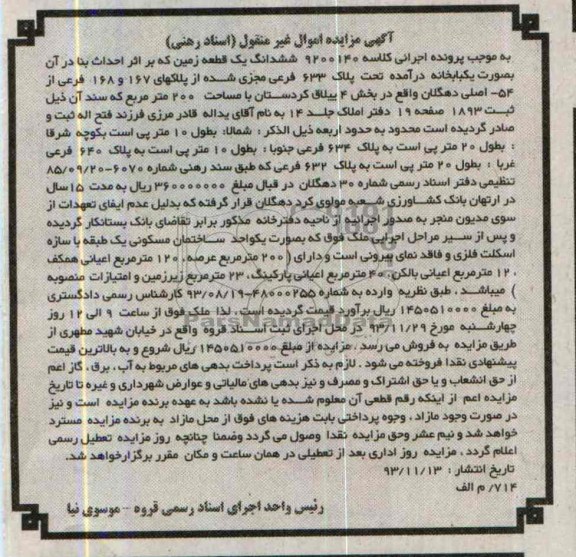 آگهی مزایده اموال غیر منقول (اسناد رهنی)
به موجب پرونده اجرائی کلاسه ۹۲۰۰۱۴۰ ششدانگ یک قطعه زمین که بر اثر احداث بنا در آن
بصورت یکبابخانه درآمده تحت پلاک ۶۳۳ فرعی مجزی شده از پلاکهای ۱۶۷ و ۱۶۸ فرعی از
۵۴- اصلی دهگلان واقع در بخش ۴ ییلاق کردستان با مساحت ۲۰۰ متر مربع که سند آن ذیل
ثبت ۱۸۹۳ صفحه ۱۹ دفتر املاک جلد ۱۴ به نام آقای یداله قادر مرزی فرزند فتح اله ثبت و
صادر گردیده است محدود به حدود اربعه ذیل الذکر : شمالا: بطول ۱۰ متر پی است بکوچه شرقا
: بطول ۲۰ متر پی است به پلاک ۶۳۴ فرعی جنوبا : بطول ۱۰ متر پی است به پلاک ۶۴۰ فرعی
غربا : بطول ۲۰ متر پی است به پلاک ۶۳۲ فرعی که طبق سند رهنی شماره ۶۰۷۰-۸۵/۰۹/۲۰
تنظیمی دفتر اسناد رسمی شماره ۳۰ دهگلان در قبال مبلغ ۳۶۰۰۰۰۰۰۰ ریال به مدت ۱۵سال
در ارتهان بانک کشاورزی شعبه مولوی کرد دهگلان قرار گرفته که بدلیل عدم ایفای تعهدات از
سوی مدیون منجر به صدور اجرائیه از ناحیه دفترخانه مذکور برابر تقاضای بانک بستانکار گردیده
و پس از سیر مراحل اجرایی ملک فوق که بصورت یکواحد ساختمان مسکونی یک طبقه با سازه
اسکلت فلزی و فاقد نمای بیرونی است و دارای (۲۰۰ مترمربع عرصه ، ۱۲۰ مترمربع اعیانی همکف
، ۱۲ مترمربع اعیانی بالکن، ۴۰ مترمربع اعیانی پارکینگ، ۲۳ مترمربع زیرزمین و امتیازات منصوبه
) میباشد . طبق نظریه وارده به شماره ۴۸۰۰۰۲۵۵-۹۳/۰۸/۱۹ کارشناس رسمی دادگستری
به مبلغ ۱۴۵۰۵۱۰۰۰۰ ریال برآورد قیمت گردیده است . لذا ملک فوق از ساعت ۹ الی ۱۲ روز
چهارشنبه مورخ ۹۳/۱۱/۲۹ در محل اجرای ثبت اسناد قروه واقع در خیابان شهید مطهری از
طریق مزایده به فروش می رسد . مزایده از مبلغ ۱۴۵۰۵۱۰۰۰۰ ریال شروع و به بالاترین قیمت
پیشنهادی نقدا فروخته می شود . لازم به ذکر است پرداخت بدهی های مربوط به آب ، برق ، گاز اعم
از حق انشعاب و یا حق اشتراک و مصرف و نیز بدهی های مالیاتی و عوارض شهرداری و غیره تا تاریخ
مزایده اعم از اینکه رقم قطعی آن معلوم شده یا نشده باشد به عهده برنده مزایده است و نیز
در صورت وجود مازاد ، وجوه پرداختی بابت هزینه های فوق از محل مازاد به برنده مزایده مسترد
خواهد شد و نیم عشر وحق مزایده نقدا وصول می گردد وضمنا چنانچه روز مزایده تعطیل رسمی
اعلام گردد ، مزایده روز اداری بعد از تعطیلی در همان ساعت و مکان مقرر برگزارخواهد شد.
تاریخ انتشار : ۹۳/۱۱/۱۳
۷۱۴/ م الف
رئیس واحد اجرای اسناد رسمی قروه - موسوی نیا